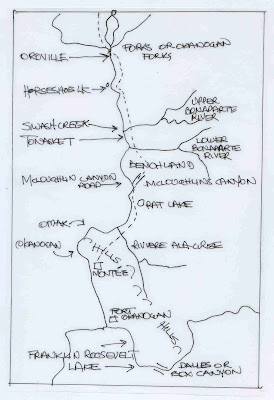 FORKS OR OKANOGAN
FORKS
OROVILLE
HORSESHOE LK
UPPER
BONAPARTE
RIVER
SWASH CREEK
TONASKET
LOWER
BONAPARTE
RIVER
BENCHLAND
MCLOUGHLIN CANYON
ROAD
MCLOUGHLINS CANYON
RAT LAKE
OMAK
OKANOGAN
HILLS
MONTEE
RIVIERE A LA
FORT
OKANOGAN
HILLS
FRANKLIN ROOSEVELT
LAKE
DALLES OR
BOX CANYON